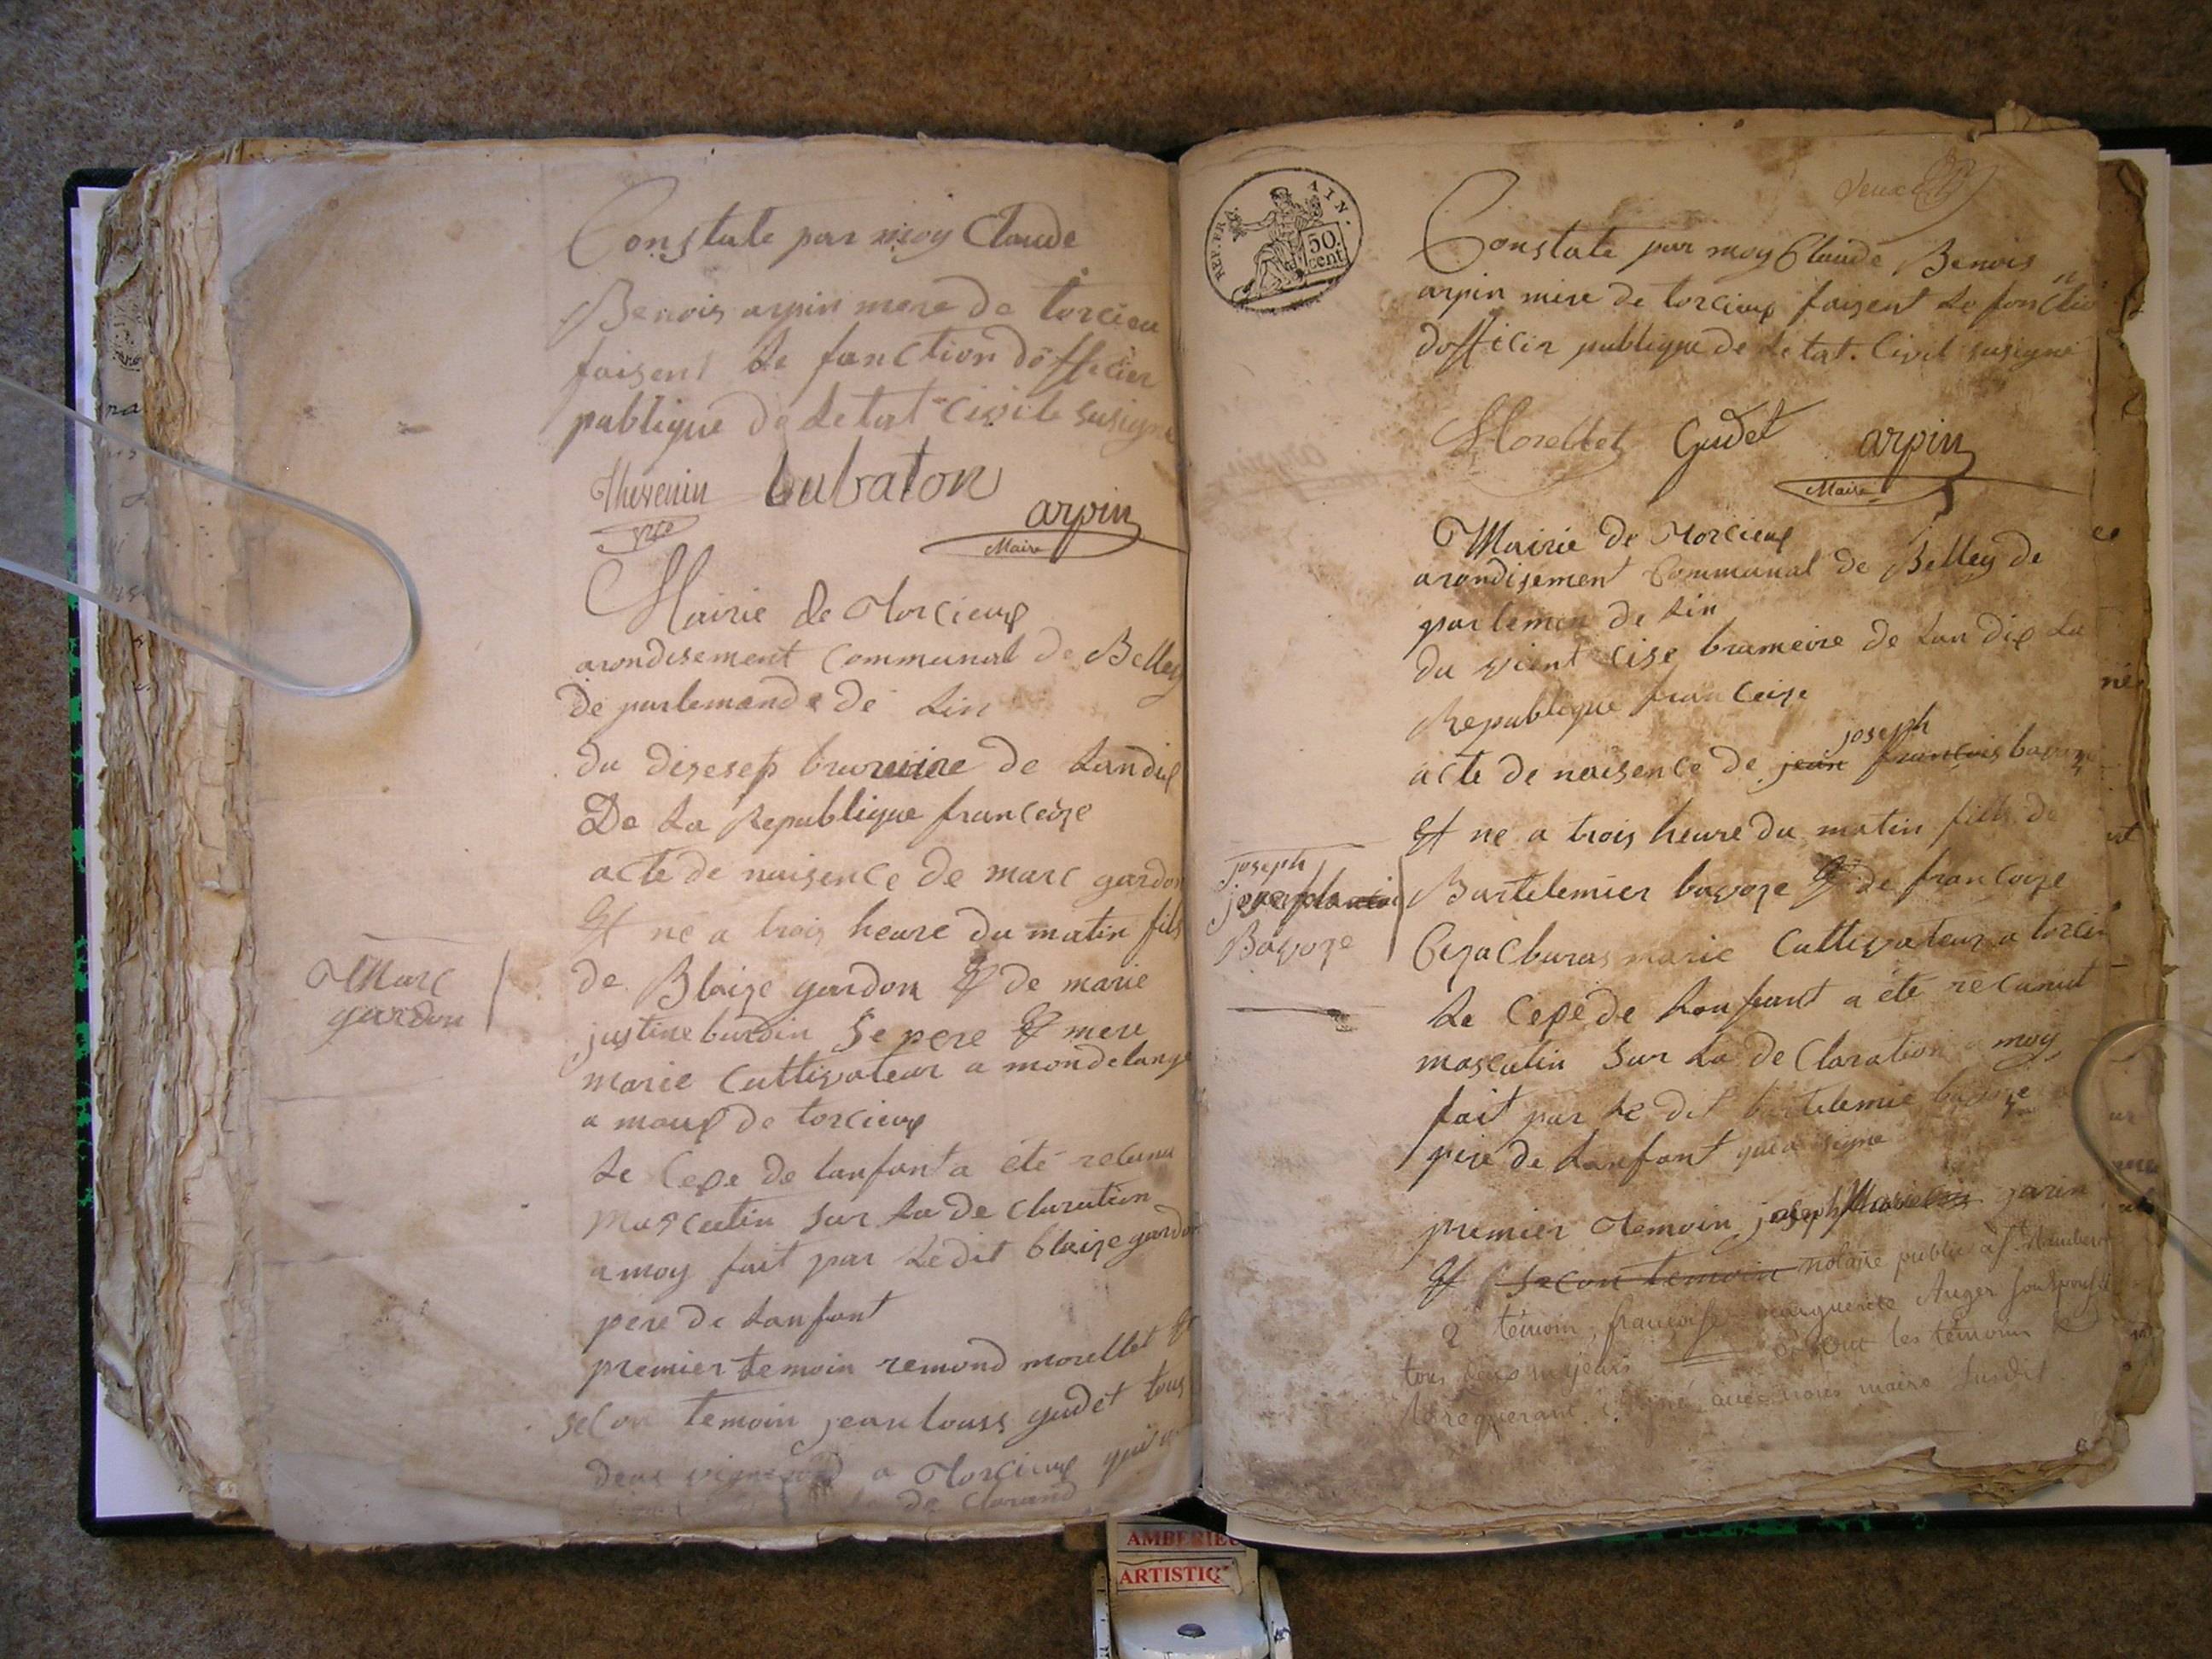 Constate par moy Claude
Benois arpin mere de torcieu
faisent le fonction dofficier
publique de Letat civile susigne
Thevenin bubaton
arpin
Maire
Mairie de Torcieux
arondisement Communal de Belley
de parlemande de Lin
du disesep brumeire de Landix
De La Republique franceize
acte de naisence de marc gardon
Et ne a trois heure du matin fils
de Blaize gardon Et de marie
justine burdin se pere Et mere
marie Cultivateur a mondelange
a maux de torcieux
Le Cexe de lanfant a été recunu
Mascutin sur La de Claration
a moy fait par Ledit blaize gardon
pere de Lanfant
premier temoin remond morellet Et
selon temoin jean louis gudet tous
deux vigneron a Torcieux
de Clarand
Marc
gardon
REP. FRA. AIN.
50.
cent.
deux
Constate par moy Claude Benois
arpin mere de torcieux faisent Le fonction
dofficier publique de Letat. Civil susigne
Morellet Gudet arpin
Maire
Mairie de Torcieux
arondisement Communal de Belley de
parlemen de Lin
du vient cise brumeire de Lan dix La
Republique franceize
joseph
acte de naisence de jean francois bavoze
Et ne a trois heure du matin fills de
Bartelemier bavoze Et de francoize
marie Cultivateur a torcieu
Le Cexe de Lanfant a été recunut
mascutin sur La de Claration a moy
fait par Le dit bartelemie bavoze
pere de Lanfant qui a signe
premier Temoin joseph garin
Et secon temoin notaire public à St. Rambert
2e témoin, françoise marguerite Auger son épouse
tous deux majeurs et ont les témoins &
le requerant signé avec nous maire susdit
joseph
Bavoze
AMBERIEU
ARTISTIQ